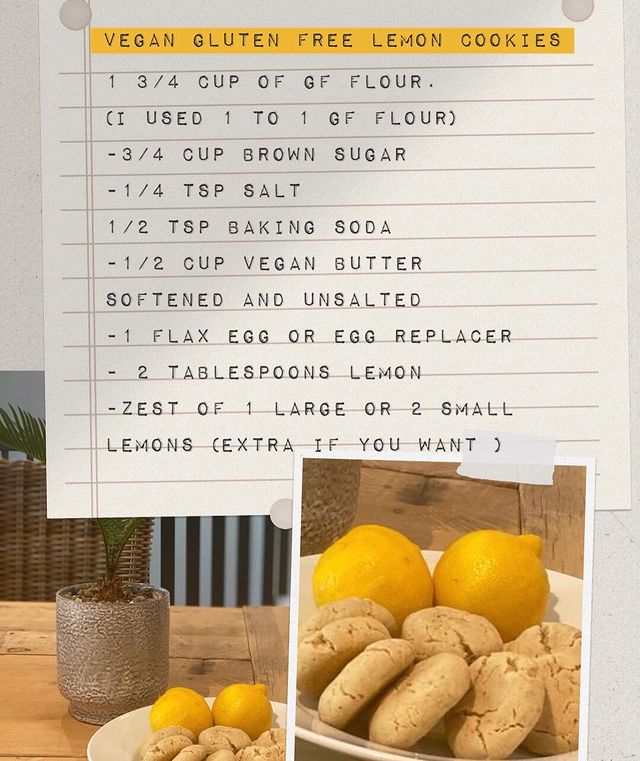 VEGAN GLUTEN FREE LEMON COOKIES
1 3/4 CUP OF GF FLOUR.
(I USED 1 TO 1 GF FLOUR)
-3/4 CUP BROWN SUGAR
-1/4 TSP SALT
1/2 TSP BAKING SODA
-1/2 CUP VEGAN BUTTER
SOFTENED AND UNSALTED
-1 FLAX EGG OR EGG REPLACER
- 2 TABLESPOONS LEMON
-ZEST OF 1 LARGE OR 2 SMALL
LEMONS (EXTRA IF YOU WANT )